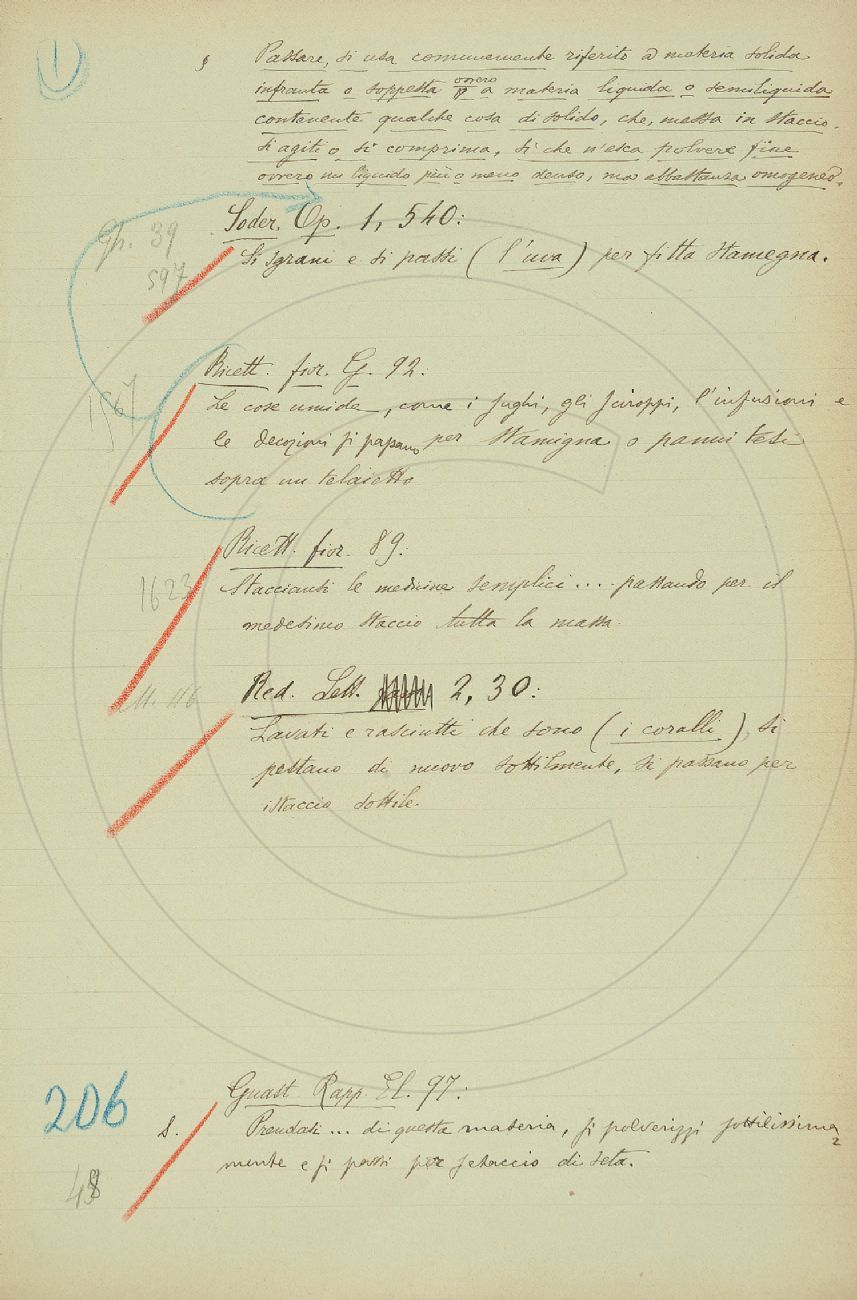 1
§ Passare, si usa comunemente riferito a materia solida
infranta o soppesta ovvero a materia liquida o semiliquida
contenente qualche cosa di solido, che, messa in staccio,
si agiti o si comprima, sì che n'esca polvere fine
ovvero un liquido più o meno denso, ma abbastanza omogeneo.
Gh. 39 Soder. Op. 1, 540:
597 Si sgrani e si passi (l'uva) per fitta stamegna.
Ricett. fior. G. 92:
1567 Le cose umide, come i sughi, gli sciroppi, l'infusioni e
le decozioni si passano per stamigna o panni tesi
sopra un telaietto
Ricett. fior. 89:
1623 Stacciansi le medicine semplici .... passando per il
medesimo staccio tutta la massa.
116 Red. Lett. 2, 30:
Lavati e rasciutti che sono (i coralli), si
pestano di nuovo sottilmente, si passano per
istaccio sottile.
206 Guast. Rapp. El. 97:
S. Prendasi ... di questa materia, si polverizzi sottilissima
48 mente e si passi per setaccio di seta.